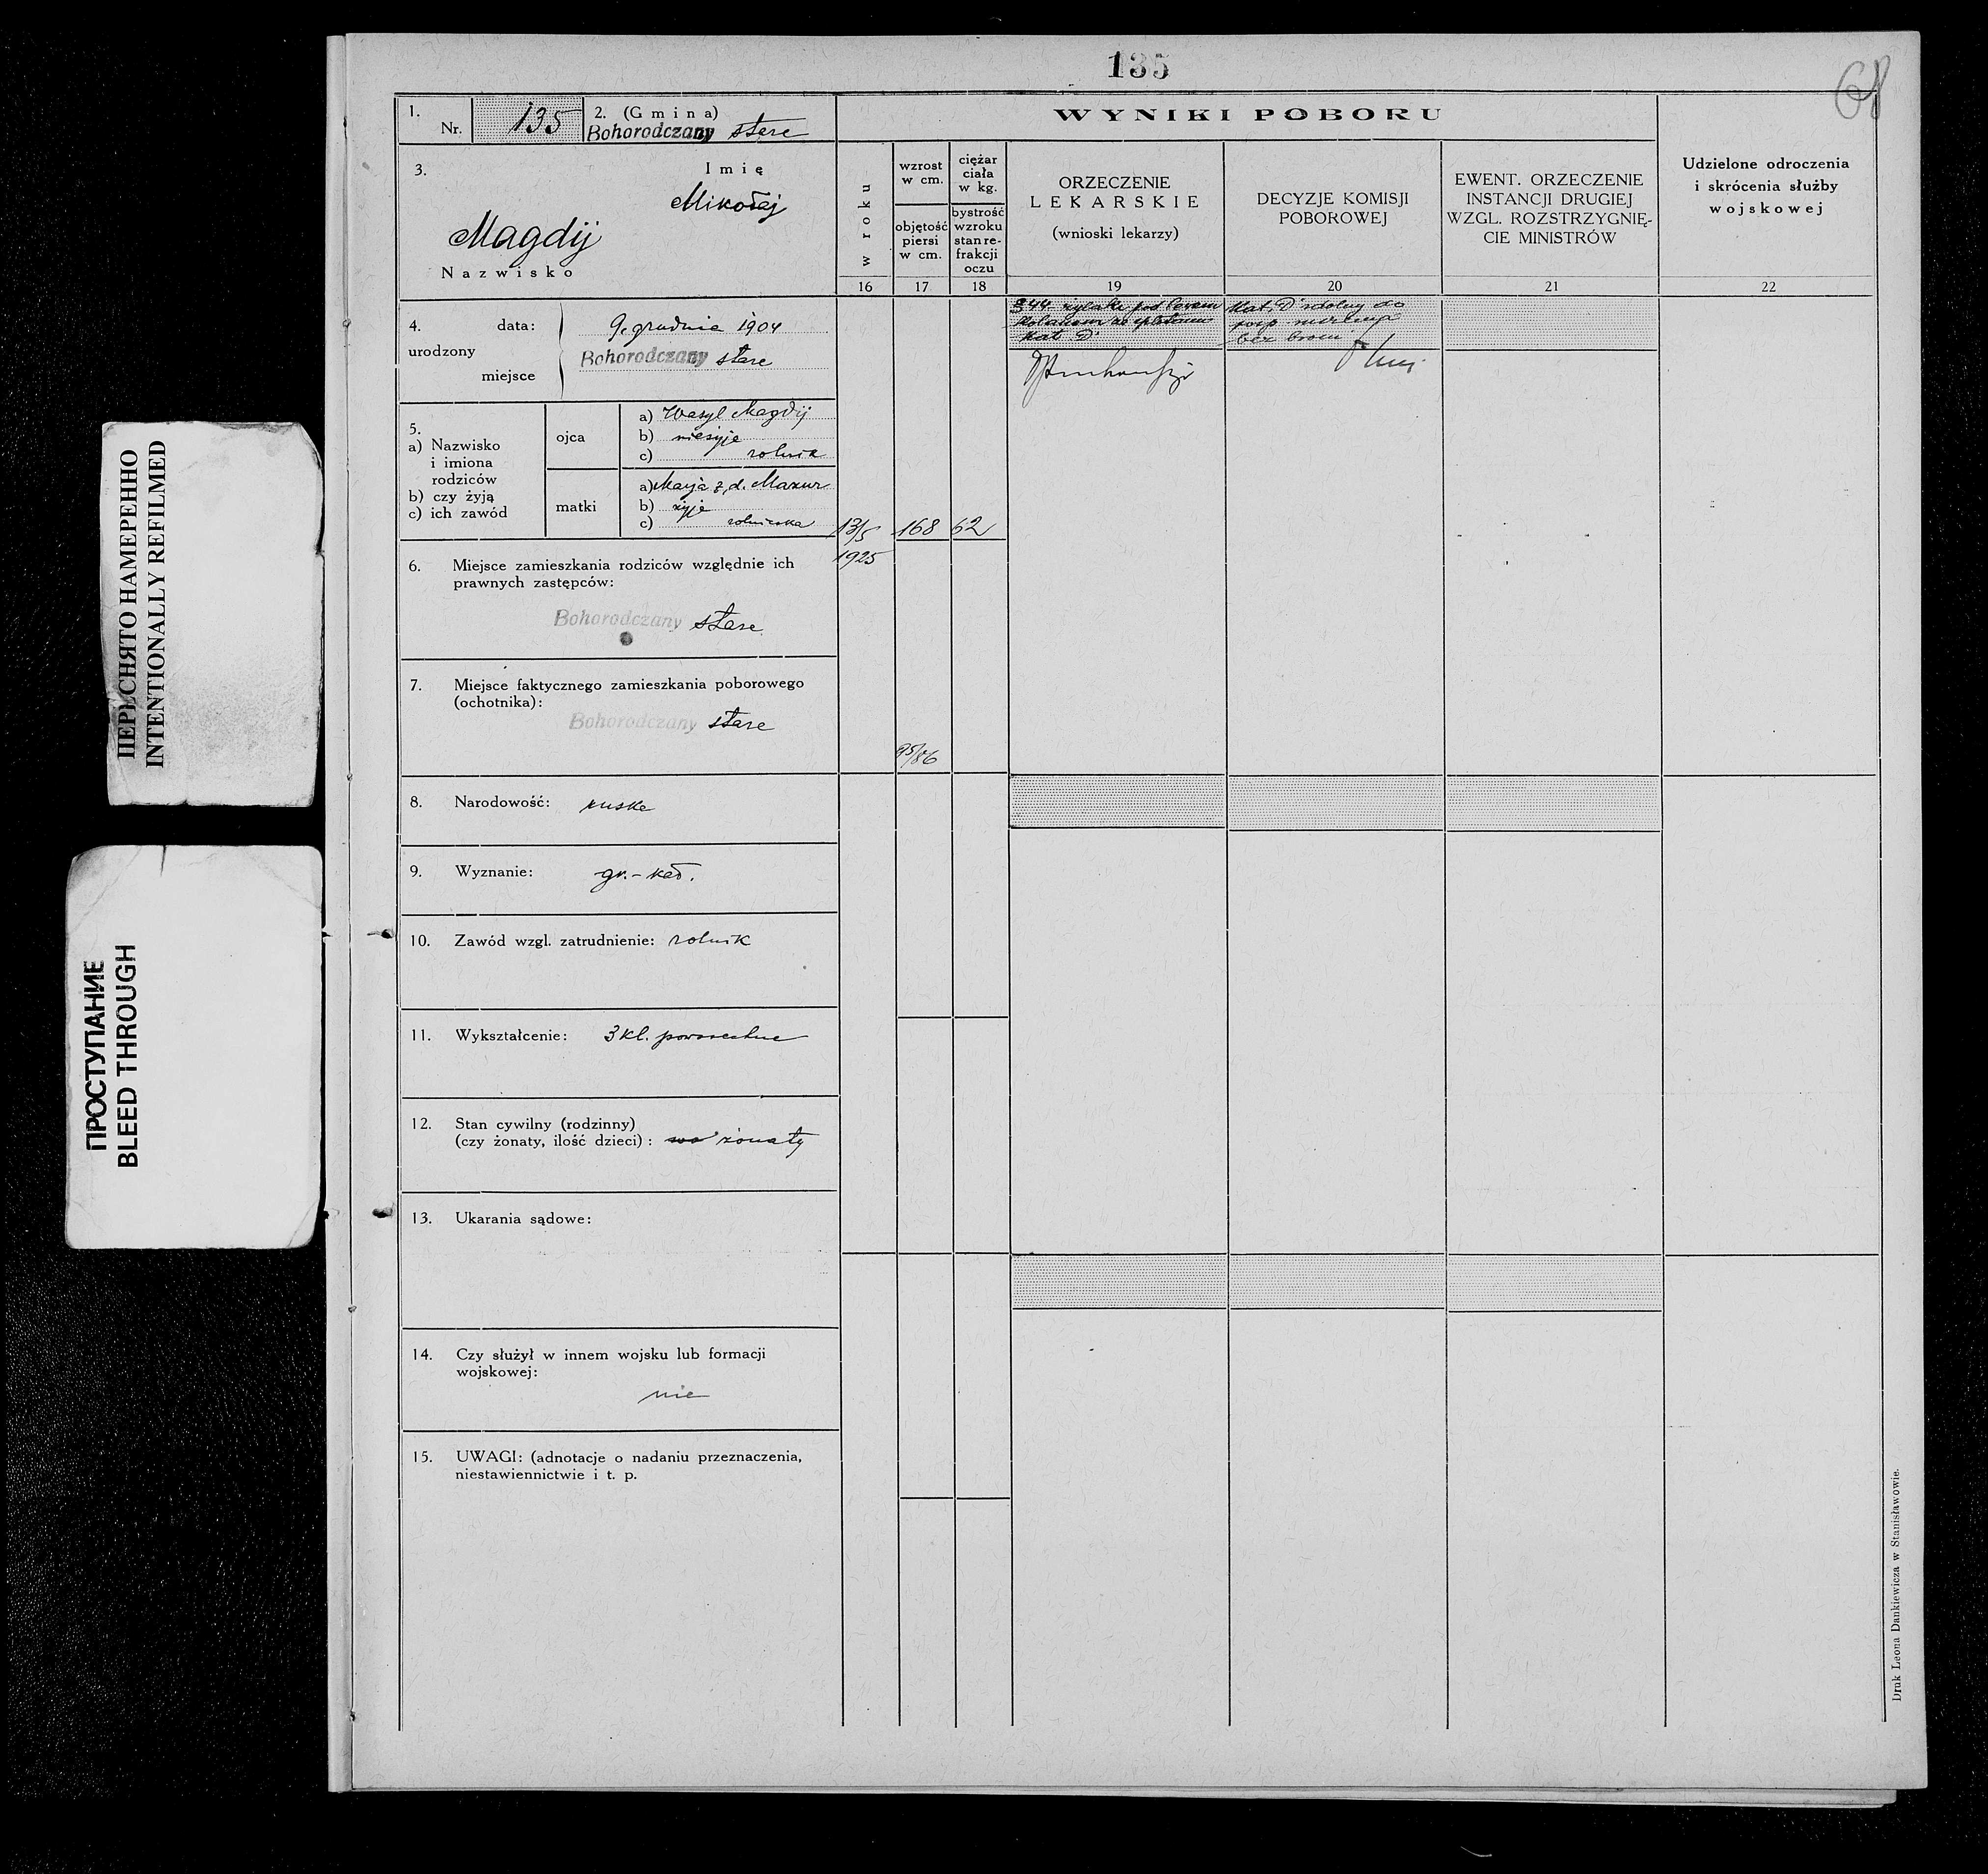 135
68
1. Nr. 135
2. (Gmina)
Bohorodczany stare
3. Imię
Mikołaj
Magdij
Nazwisko
4. urodzony
data: 9. grudnia 1904
miejsce Bohorodczany stare
5.
a) Nazwisko
i imiona
rodziców
b) czy żyją
c) ich zawód
ojca
a) Wasyl Magdij
b) nieżyje
c) rolnik
matki
a) Marja z d. Mazur
b) żyje
c) rolniczka
6. Miejsce zamieszkania rodziców względnie ich
prawnych zastępców:
Bohorodczany stare
7. Miejsce faktycznego zamieszkania poborowego
(ochotnika):
Bohorodczany stare
8. Narodowość: ruska
9. Wyznanie: gr.-kat.
10. Zawód wzgl. zatrudnienie: rolnik
11. Wykształcenie: 3 kl. powszechne
12. Stan cywilny (rodzinny)
(czy żonaty, ilość dzieci): żonaty
13. Ukarania sądowe:
14. Czy służył w innem wojsku lub formacji
wojskowej:
nie
15. UWAGI: (adnotacje o nadaniu przeznaczenia,
niestawiennictwie i t. p.
WYNIKI POBORU
w roku
16
wzrost
w cm.
objętość
piersi
w cm.
17
ciężar
ciała
w kg.
bystrość
wzroku
stan re-
frakcji
oczu
18
ORZECZENIE
LEKARSKIE
(wnioski lekarzy)
19
DECYZJE KOMISJI
POBOROWEJ
20
EWENT. ORZECZENIE
INSTANCJI DRUGIEJ
WZGL. ROZSTRZYGNIĘ-
CIE MINISTRÓW
21
Udzielone odroczenia
i skrócenia służby
wojskowej
22
13/5
1925
168
62
95/86
§ 44 żylaki pod lewem
kolanem ze splotami
kat. D
Kat. D zdolny do
posp. ruszenia
bez broni
Druk Leona Dankiewicza w Stanisławowie.
ПЕРЕСНЯТО НАМЕРЕННО
INTENTIONALLY REFILMED
ПРОСТУПАНИЕ
BLEED THROUGH